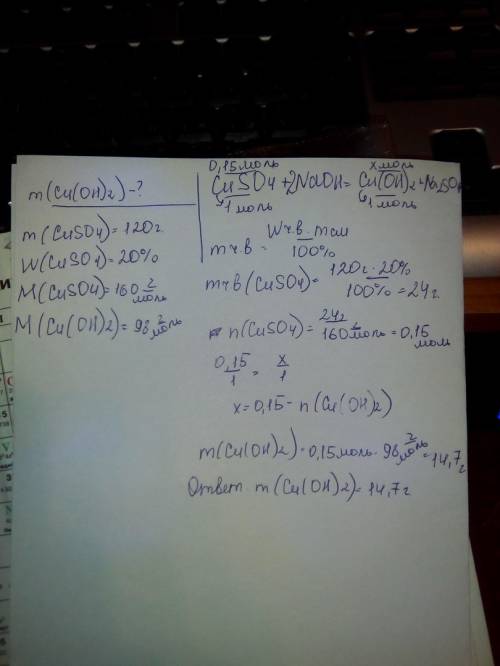 m(Cu(OH)2)-?
m(CuSO4)=120г.
W(CuSO4)=20%
M(CuSO4)=160 г/моль
M(Cu(OH)2)=98 г/моль
0,15моль х моль
CuSO4+2NaOH=Cu(OH)2+Na2SO4
1 моль 1 моль
mч.в.= Wч.в.·mсм / 100%
mч.в(CuSO4)= 120г·20% / 100% =24г.
n(CuSO4)= 24г / 160 г/моль =0,15 моль
0,15/1 = x/1
x=0,15- n(Cu(OH)2)
m(Cu(OH)2)=0,15моль·98 г/моль=14,7г
Ответ. m(Cu(OH)2)=14,7г